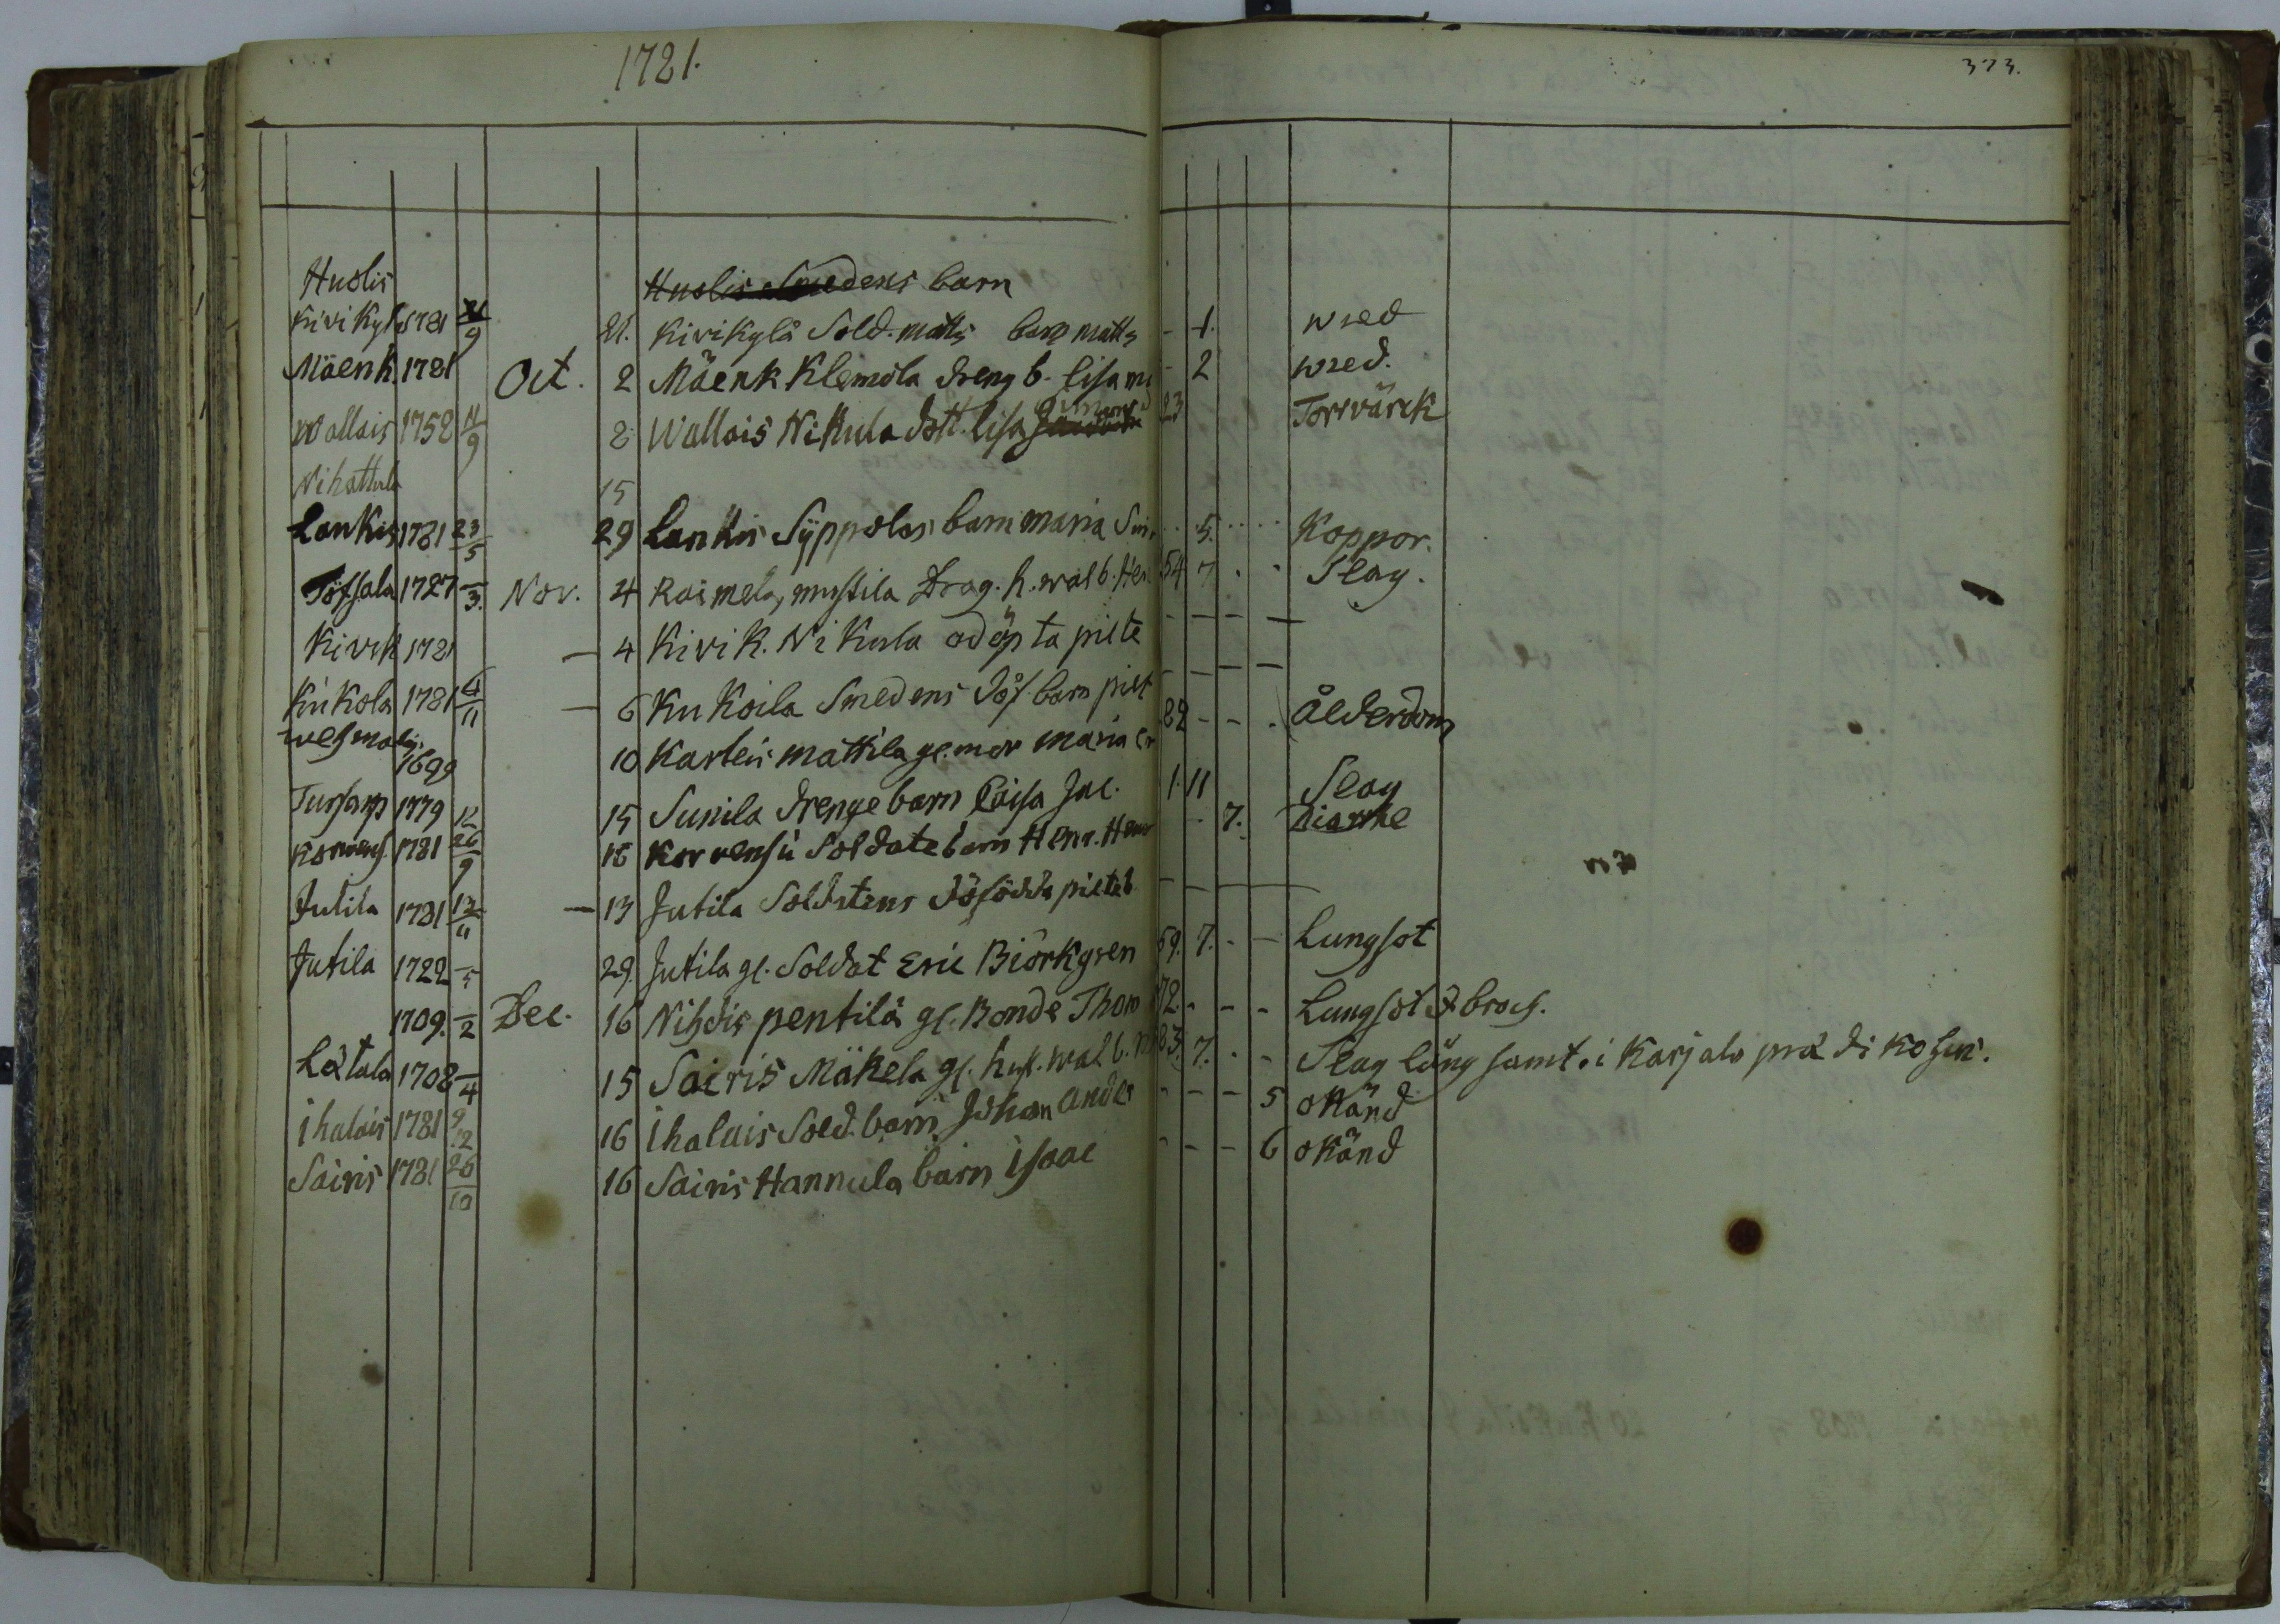 1781.
373.
Huolis Huolis Smedens barn
Kivikylä 1781 21/9 21. Kivikylä Sold. matts barn matts - 1. wred
Mäenk. 1781 Oct. 2 Mäenk Klemola dreng b. lisa - 2 wred.
Wallais 1758 9 2 Wallais Nikula dott. lisa 23 Torrvärck
Nihattula 15
Lankis 1781 23/5 29 Lankis Sÿppolas barn maria 5. Koppor.
Töfsala 1727 -/3. Nov. 4 Raimela, mustila Drag. h. wal b. 54 7 Slag.
Kivik 1781 - 4 Kivik. Nikula odöpta pilte - - - -
Kukola 1781 4/11 - 6 Kukoila Smedens döf. barn pilt - - - -
wehmalis 1699 10 Karleis mattila gl. mor maria 82 - - . Ålderdom
1779 12 15 Sunila drenge barn Caisa Jac. 1. 11 Slag
Korvens. 1781 26/9 18 Korvensu Soldate barn Henr. - 7. diarrhe
Jutila 1781 13/11 - 13 Jutila Soldatens döfödda pilteb - - -
Jutila 1722 -/5 29. Jutila gl. Soldat Eric Biörkgren 59. 7. - - Lungsot
1709. -/2 Dec. 16 Nihdis pentilä gl. Bonde Thom 72. - - - Lungsot & brock.
Lätala 1708 -/4 15 Sairis Mäkela gl. hust. wal b. 83. 7. - - Slag lång samt. i Karjalo
ihalais 1781 9/12 16 ihalais Sold. barn Johan Anders - - - 5 okänd
Sairis 1781 26/10 16 Sairis Hannula barn isaac - - - 6 okänd